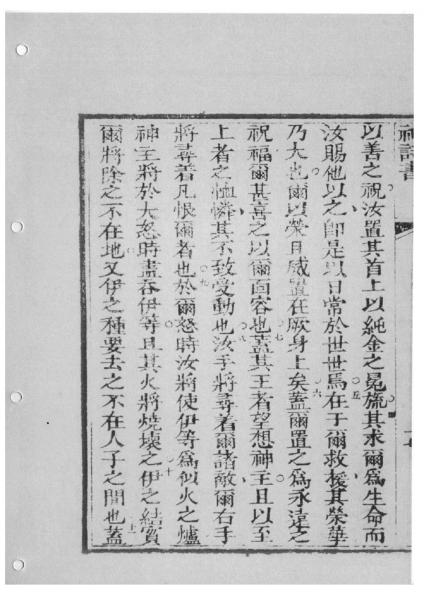 神詩書
以善之祝汝置其首上以純金之冕旒其求爾爲生命而
汝賜他以之卽是以日常於世世焉在于爾救援其榮華
乃大也爾以榮且威置在厥身上矣蓋爾置之爲永遠之
祝福爾甚喜之以爾面容也蓋其王者望想神主且以至
上者之恤憐其不致受動也汝手將尋着爾諸敵爾右手
將尋着凡恨爾者也於爾怒時汝將使伊等爲似火之爐
神主將於大怒時盡吞伊等且其火將燒壞之伊之結實
爾將除之不在地又伊之種要去之不在人子之間也蓋